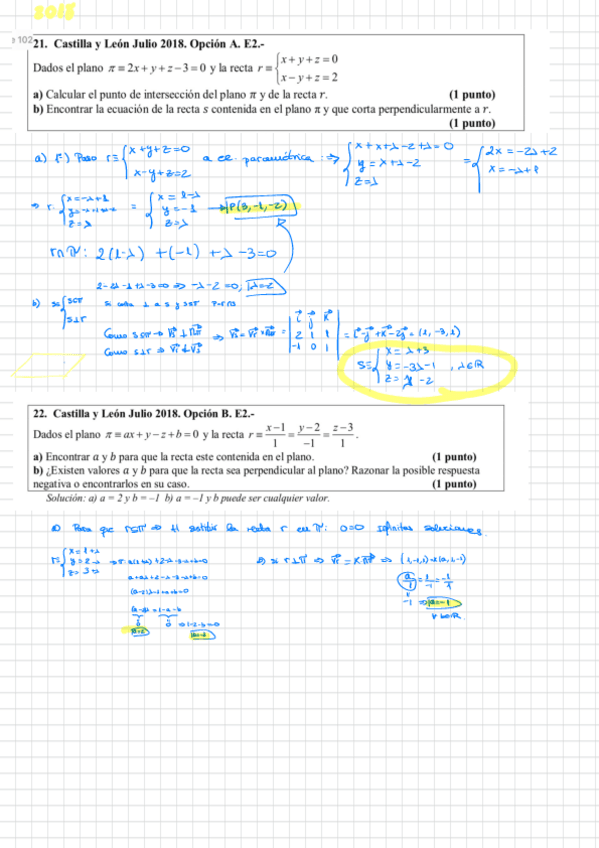 2018
102
21. Castilla y León Julio 2018. Opción A. E2.-
Dados el plano π ≡ 2x + y + z − 3 = 0 y la recta r ≡ { x + y + z = 0
x − y + z = 2
a) Calcular el punto de intersección del plano π y de la recta r. (1 punto)
b) Encontrar la ecuación de la recta s contenida en el plano π y que corta perpendicularmente a r.
(1 punto)
a) Paso r≡ { x+y+z=0 a ec. paramétrica: ⇒ { x+x+λ-2+λ=0 = { 2x=-2λ+2
x-y+z=2 y=x+λ-2 x=-λ+1
z=λ
⇒ r: { x=-λ+1 = { x=1-λ
y=-1 → P(3,-1,-2)
z=λ z=λ
r∩π: 2(1-λ)+(-1)+λ-3=0
2-2λ-1+λ-3=0 ⇒ -λ-2=0; λ=-2
b) s≡ { s⊂π
s⊥r
Como s⊂π → ⇒ = | i j k
2 1 1
-1 0 1 | = i-j+k-2j = (1,-3,1)
Como s⊥r ⇒
s≡ { x=λ+3
y=-3λ-1 , λ∈R
z=λ-2
22. Castilla y León Julio 2018. Opción B. E2.-
Dados el plano π ≡ ax + y − z + b = 0 y la recta r ≡ x−1/1 = y−2/−1 = z−3/1 .
a) Encontrar a y b para que la recta este contenida en el plano. (1 punto)
b) ¿Existen valores a y b para que la recta sea perpendicular al plano? Razonar la posible respuesta
negativa o encontrarlos en su caso. (1 punto)
Solución: a) a = 2 y b = −1 b) a = −1 y b puede ser cualquier valor.
Para que r⊂π ⇒ Al sustituir la recta r en π: 0=0 infinitas soluciones.
r≡ { x=1+λ
y=2-λ
z=3+λ
(a-2)λ=1-a-b
a=2
r⊥π ⇒ (1,-1,1)
a=-1
∀ b∈R.